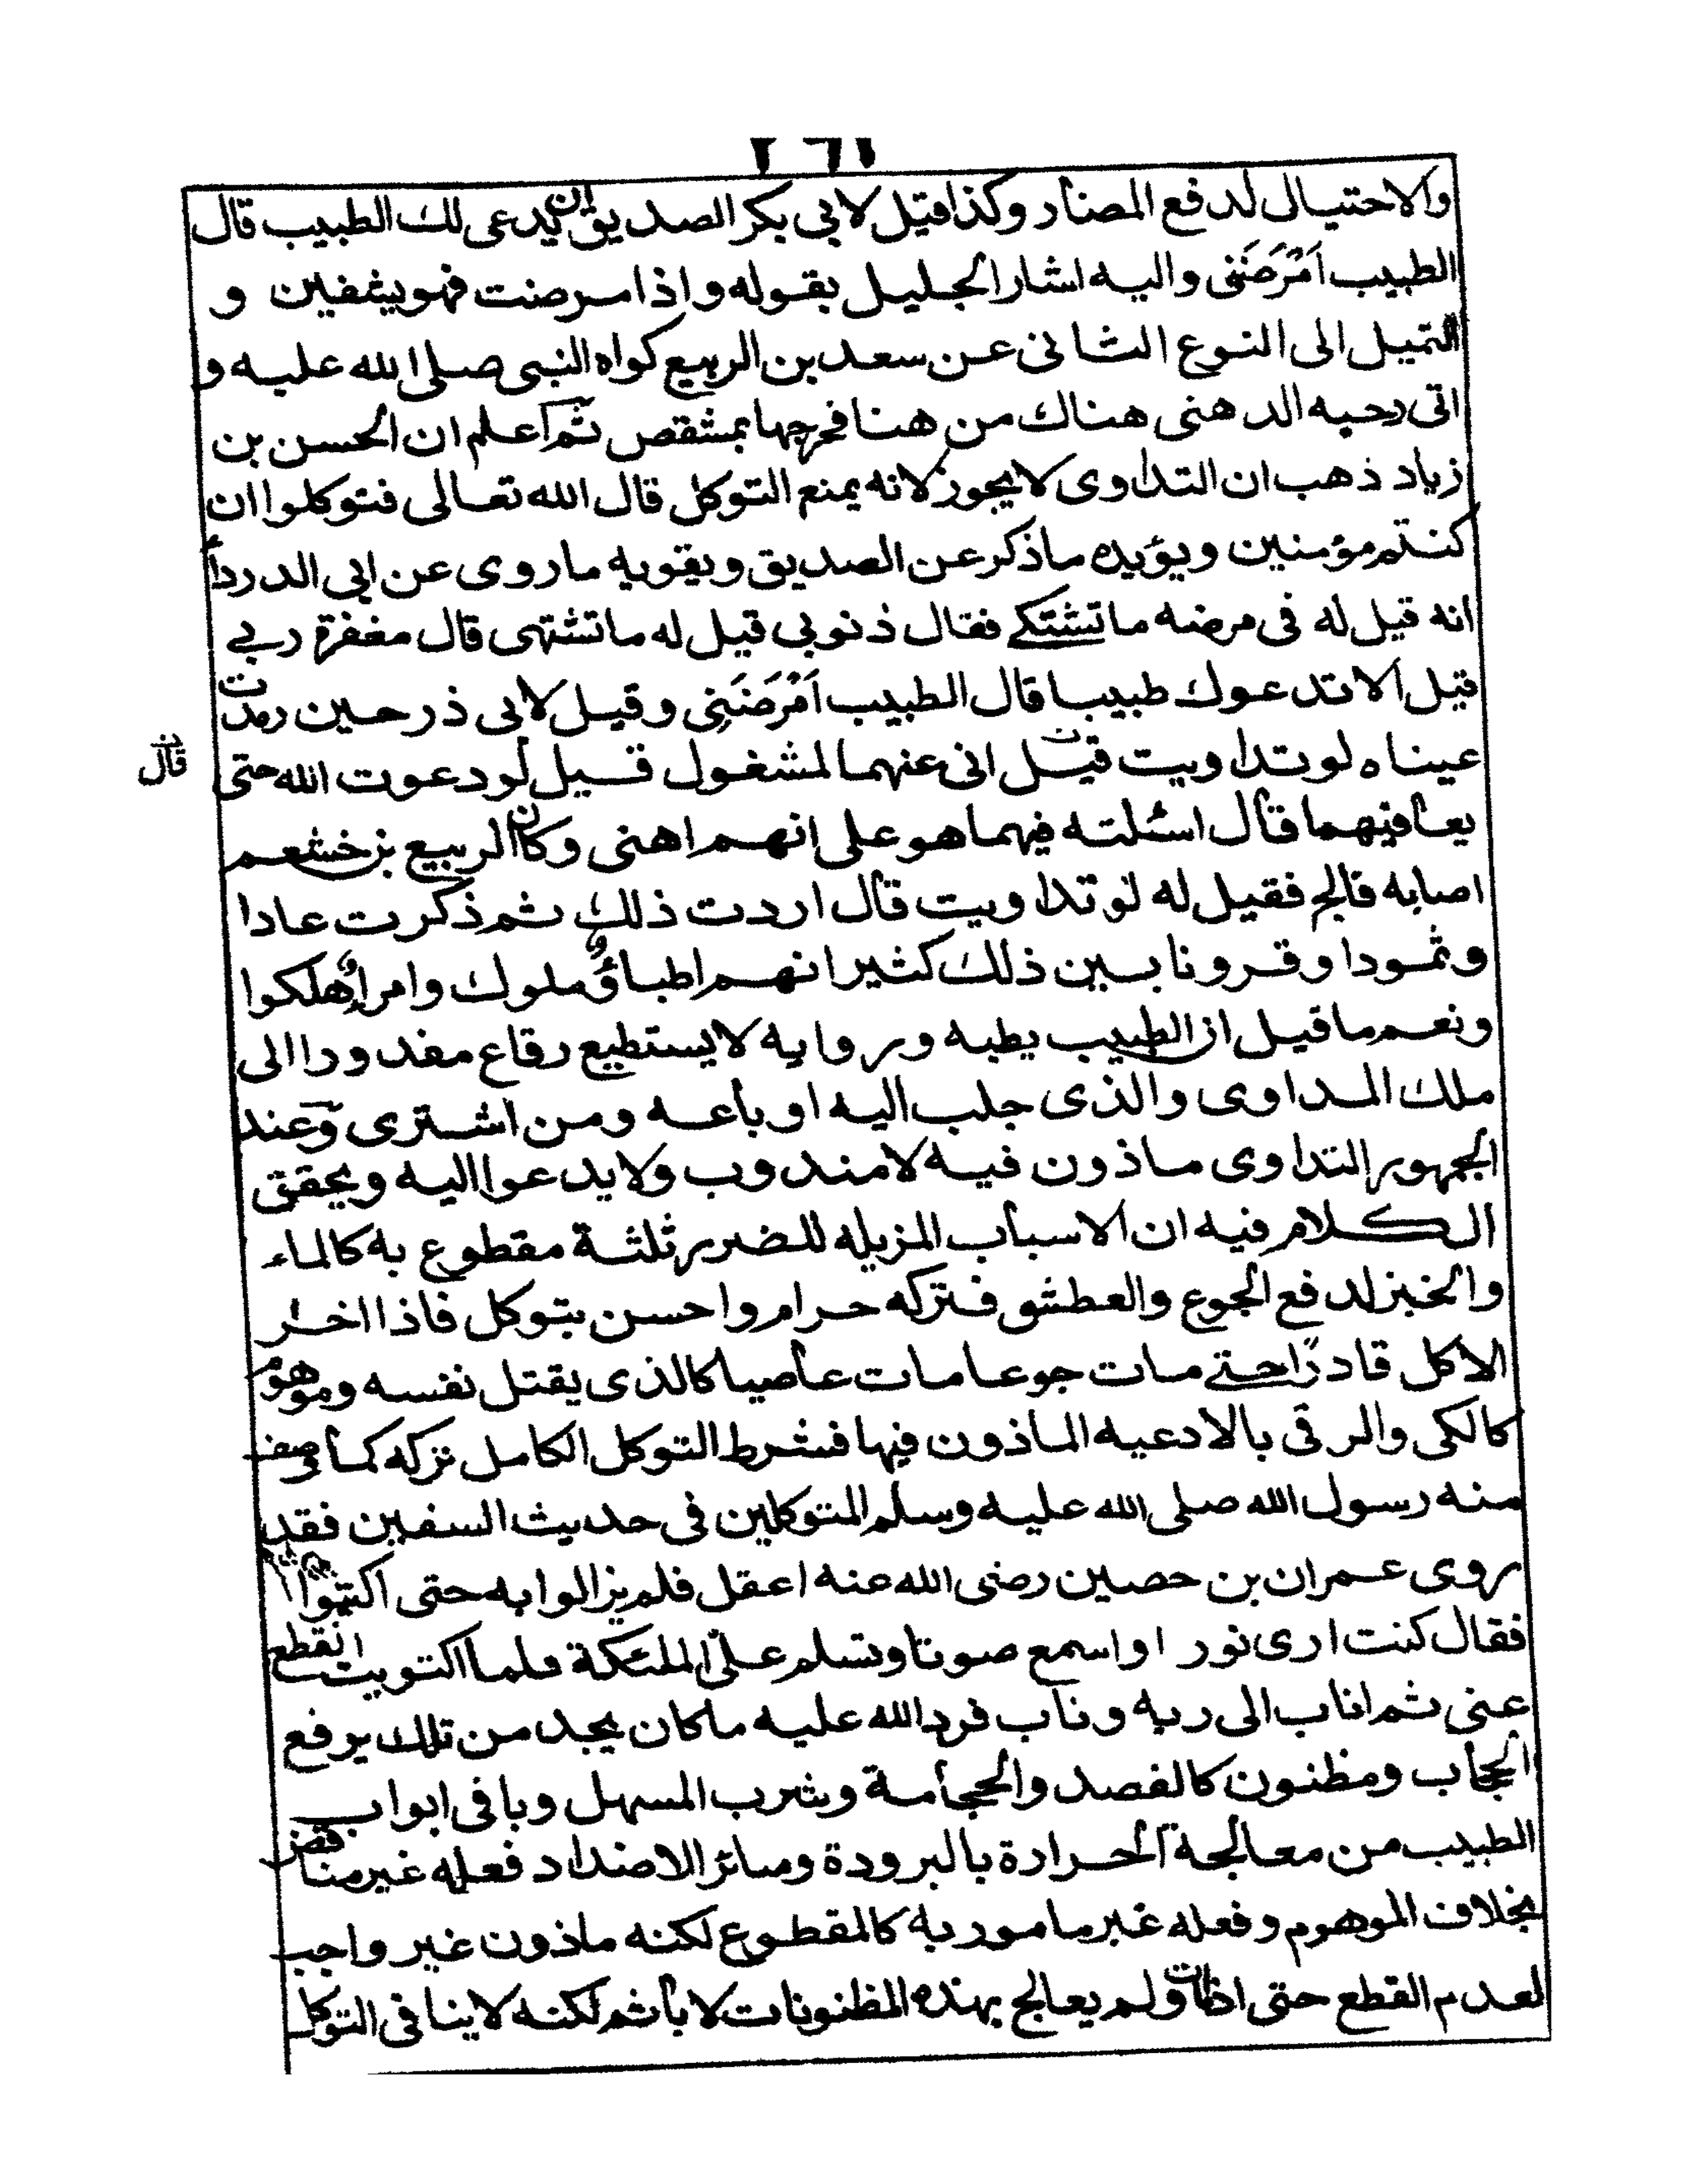 ٢٦١
والاحتيال لدفع المضار وكذا قيل لابي بكر الصديق ان يدعى لك الطبيب قال
الطبيب اَمْرَضَنِى واليه اشار الجليل بقوله واذا مرضت فهو يشفين و
التميل الى النوع الثانى عن سعد بن الربيع كواه النبى صلى الله عليه و
اتى دحيه الدهنى هناك من هنا فخرجها بمشقص ثم اعلم ان الحسن بن
زياد ذهب ان التداوى لا يجوز لانه يمنع التوكل قال الله تعالى فتوكلوا ان
كنتم مؤمنين ويؤيده ما ذكر عن الصديق ويقويه ما روى عن ابى الدرداً
انه قيل له فى مرضه ما تشتكے فقال ذنوبى قيل له ما تشتهى قال مغفرة ربے
قيل الا ندعوك طبيبا قال الطبيب اَمْرَضَنِى وقيل لابى ذر حين رمدت
عيناه لو تداويت قيل انى عنهما لمشغول قيل لو دعوت الله حتى
قال
يعافيهما قال اسئلته فيهما هو على انهم اهنى وكان الربيع بن خشعم
اصابه فالج فقيل له لو تداويت قال اردت ذلك ثم ذكرت عادا
وثمودا وقرونا بين ذلك كثيرا انهم اطباؤ ملوك وامراء هلكوا
ونعم ما قيل ان الطبيب يطبه وبروايه لا يستطيع رقاع مقدورا الى
ملك المداوى والذى جلب اليه او باعه ومن اشترى وعند
الجمهور التداوى ماذون فيه لا مندوب ولا يدعوا اليه ويحقق
الكلام فيه ان الاسباب المزيله للضرر ثلثة مقطوع به كالماء
والخبز لدفع الجوع والعطش فتركه حرام واحسن بتوكل فاذا اخر
الاكل قادرًا حتے مات جوعا مات عاصيا كالذى يقتل نفسه وموهوم
كالكى والرقى بالادعيه الماذون فيها فشرط التوكل الكامل تركه كما فى صف
منه رسول الله صلى الله عليه وسلم المتوكلين فى حديث السفين فقد
روى عمران بن حصين رضى الله عنه اعقل فلم يزالوا به حتى اكتوا
فقال كنت ارى نور او اسمع صوتا وتسلم علىّ الملئكة فلما اكتويت انقطع
عنى ثم اناب الى ربه وناب فرد الله عليه ما كان يجد من تلك يرفع
الحجاب ومظنون كالفصد والحجامة وشرب المسهل وباقى ابواب
الطبيب من معالجة الحرارة بالبرودة وسائر الاضداد فعله غير مناقض
بخلاف الموهوم وفعله غير مامور به كالمقطوع لكنه ماذون غير واجب
لعدم القطع حتى اذا مات ولم يعالج بهذه المظنونات لا يأثم لكنه لا ينافى التوكل